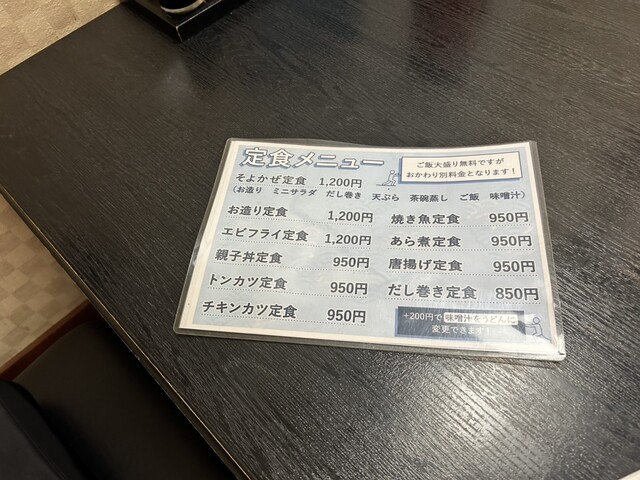 定食メニュー
ご飯大盛り無料ですが
おかわり別料金となります！
そよかぜ定食 1,200円
（お造り ミニサラダ だし巻き 天ぷら 茶碗蒸し ご飯 味噌汁）
お造り定食 1,200円
エビフライ定食 1,200円
親子丼定食 950円
トンカツ定食 950円
チキンカツ定食 950円
焼き魚定食 950円
あら煮定食 950円
唐揚げ定食 950円
だし巻き定食 850円
+200円で味噌汁をうどんに
変更できます！